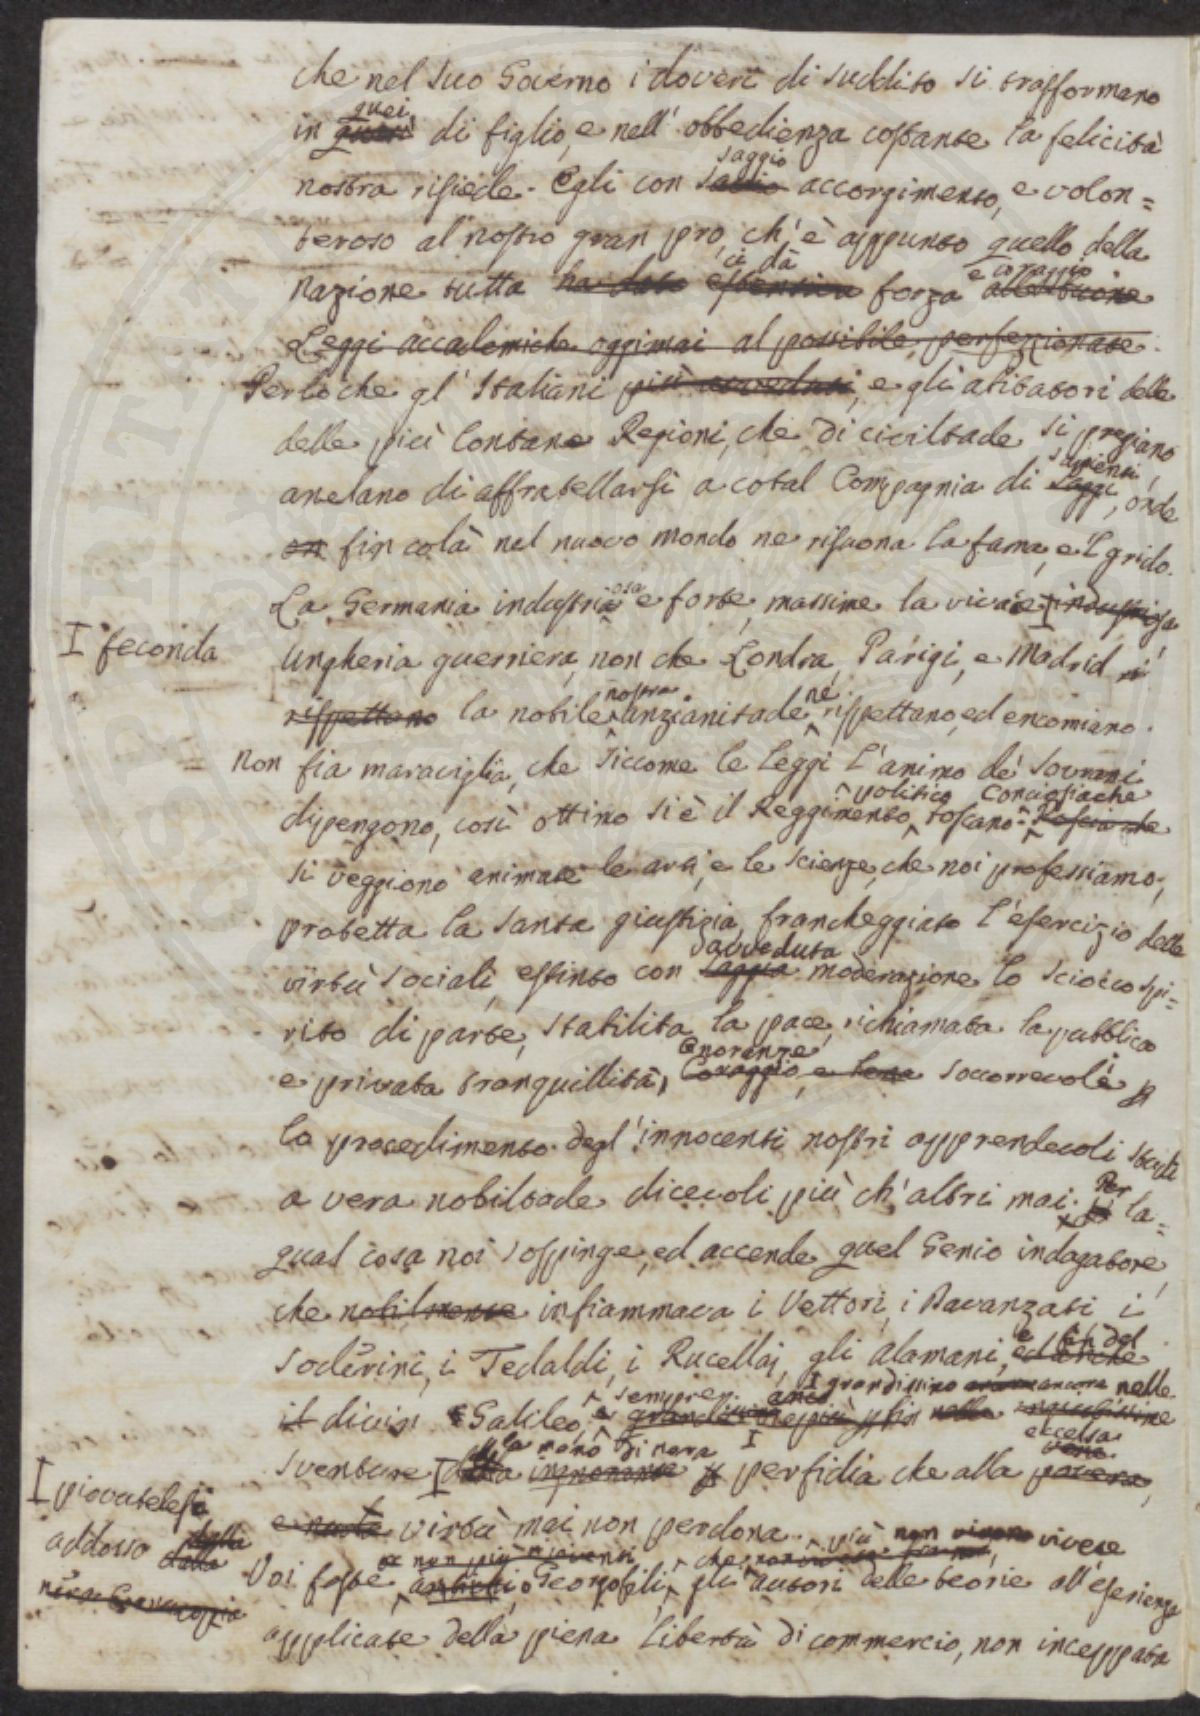 che nel suo Governo i doveri di suddito si trasformano
quei
in quelli di figlio, e nell'obbedienza costante la felicità
saggio
nostra risiede. Egli con savio accorgimento, e volon=
teroso al nostro gran pro, ch'è appunto quello della
ci dà
e coraggio
Nazione tutta ha dato forza
Leggi accademiche oggimai al possibile perfezionate.
Perloche gl'Italiani più avveduti, e gli abitatori delle
delle più lontane Regioni, che di civiltade si pregiano
sapienti
anelano di affratellarsi a cotal Compagnia di saggi, onde
fin colà nel nuovo mondo ne risuona la fama, e 'l grido.
osa
La Germania industria e forte, massime la vicina industriosa
I feconda
Ungheria guerriera, non che Londra, Parigi, e Madrid ri
nostra
ne
rispettano la nobile anzianitade rispettano, ed encomiano.
Non fia maraviglia, che siccome le Leggi l'animo de' Sovrani
politico
Conciosiache
dipengono, così ottimo si è il Reggimento toscano.
si veggiono animate le arti, e le scienze, che noi professiamo,
protetta la santa giustizia, francheggiato l'esercizio delle
avveduta
virtù sociali, estinto con saggia moderazione lo sciocco spi=
rito di parte, stabilita la pace, richiamata la pubblica
Onoranze
e privata tranquillità, Coraggio, e lena soccorrevole
lo procedimento degl'innocenti nostri apprendevoli
Per
a vera nobiltade dicevoli più ch'altri mai. la=
qual cosa noi sospinge, ed accende quel Genio indagatore,
che nobilmente infiammava i Vettori, i Davanzati i
Soderini, i Tedaldi, i Rucellaj, gli Alamani, ed anche
sempre
grandissimo
ancora nelle
il divin Galileo, e
eccelsa
la mano di nera
vera
sventure perfidia che alla povera,
I piovutelesi
addosso dalla
dalla
e nuda virtù mai non perdona.
più non vivono vivere
non più
che
Voi foste antichi, o Georgofili, gli autori delle teorie all'esperienze
applicate della piena libertà di commercio, non inceppata